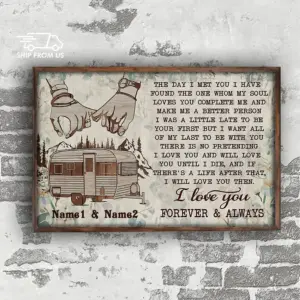 SHIP FROM US
THE DAY I MET YOU I HAVE
FOUND THE ONE WHOM MY SOUL
LOVES YOU COMPLETE ME AND
MAKE ME A BETTER PERSON
I WAS A LITTLE LATE TO BE
YOUR FIRST BUT I WANT ALL
OF MY LAST TO BE WITH YOU
THERE IS NO PRETENDING
I LOVE YOU AND WILL LOVE
YOU UNTIL I DIE, AND IF
THERE'S A LIFE AFTER THAT,
I WILL LOVE YOU THEN.
I love you
FOREVER & ALWAYS
Name1 & Name2